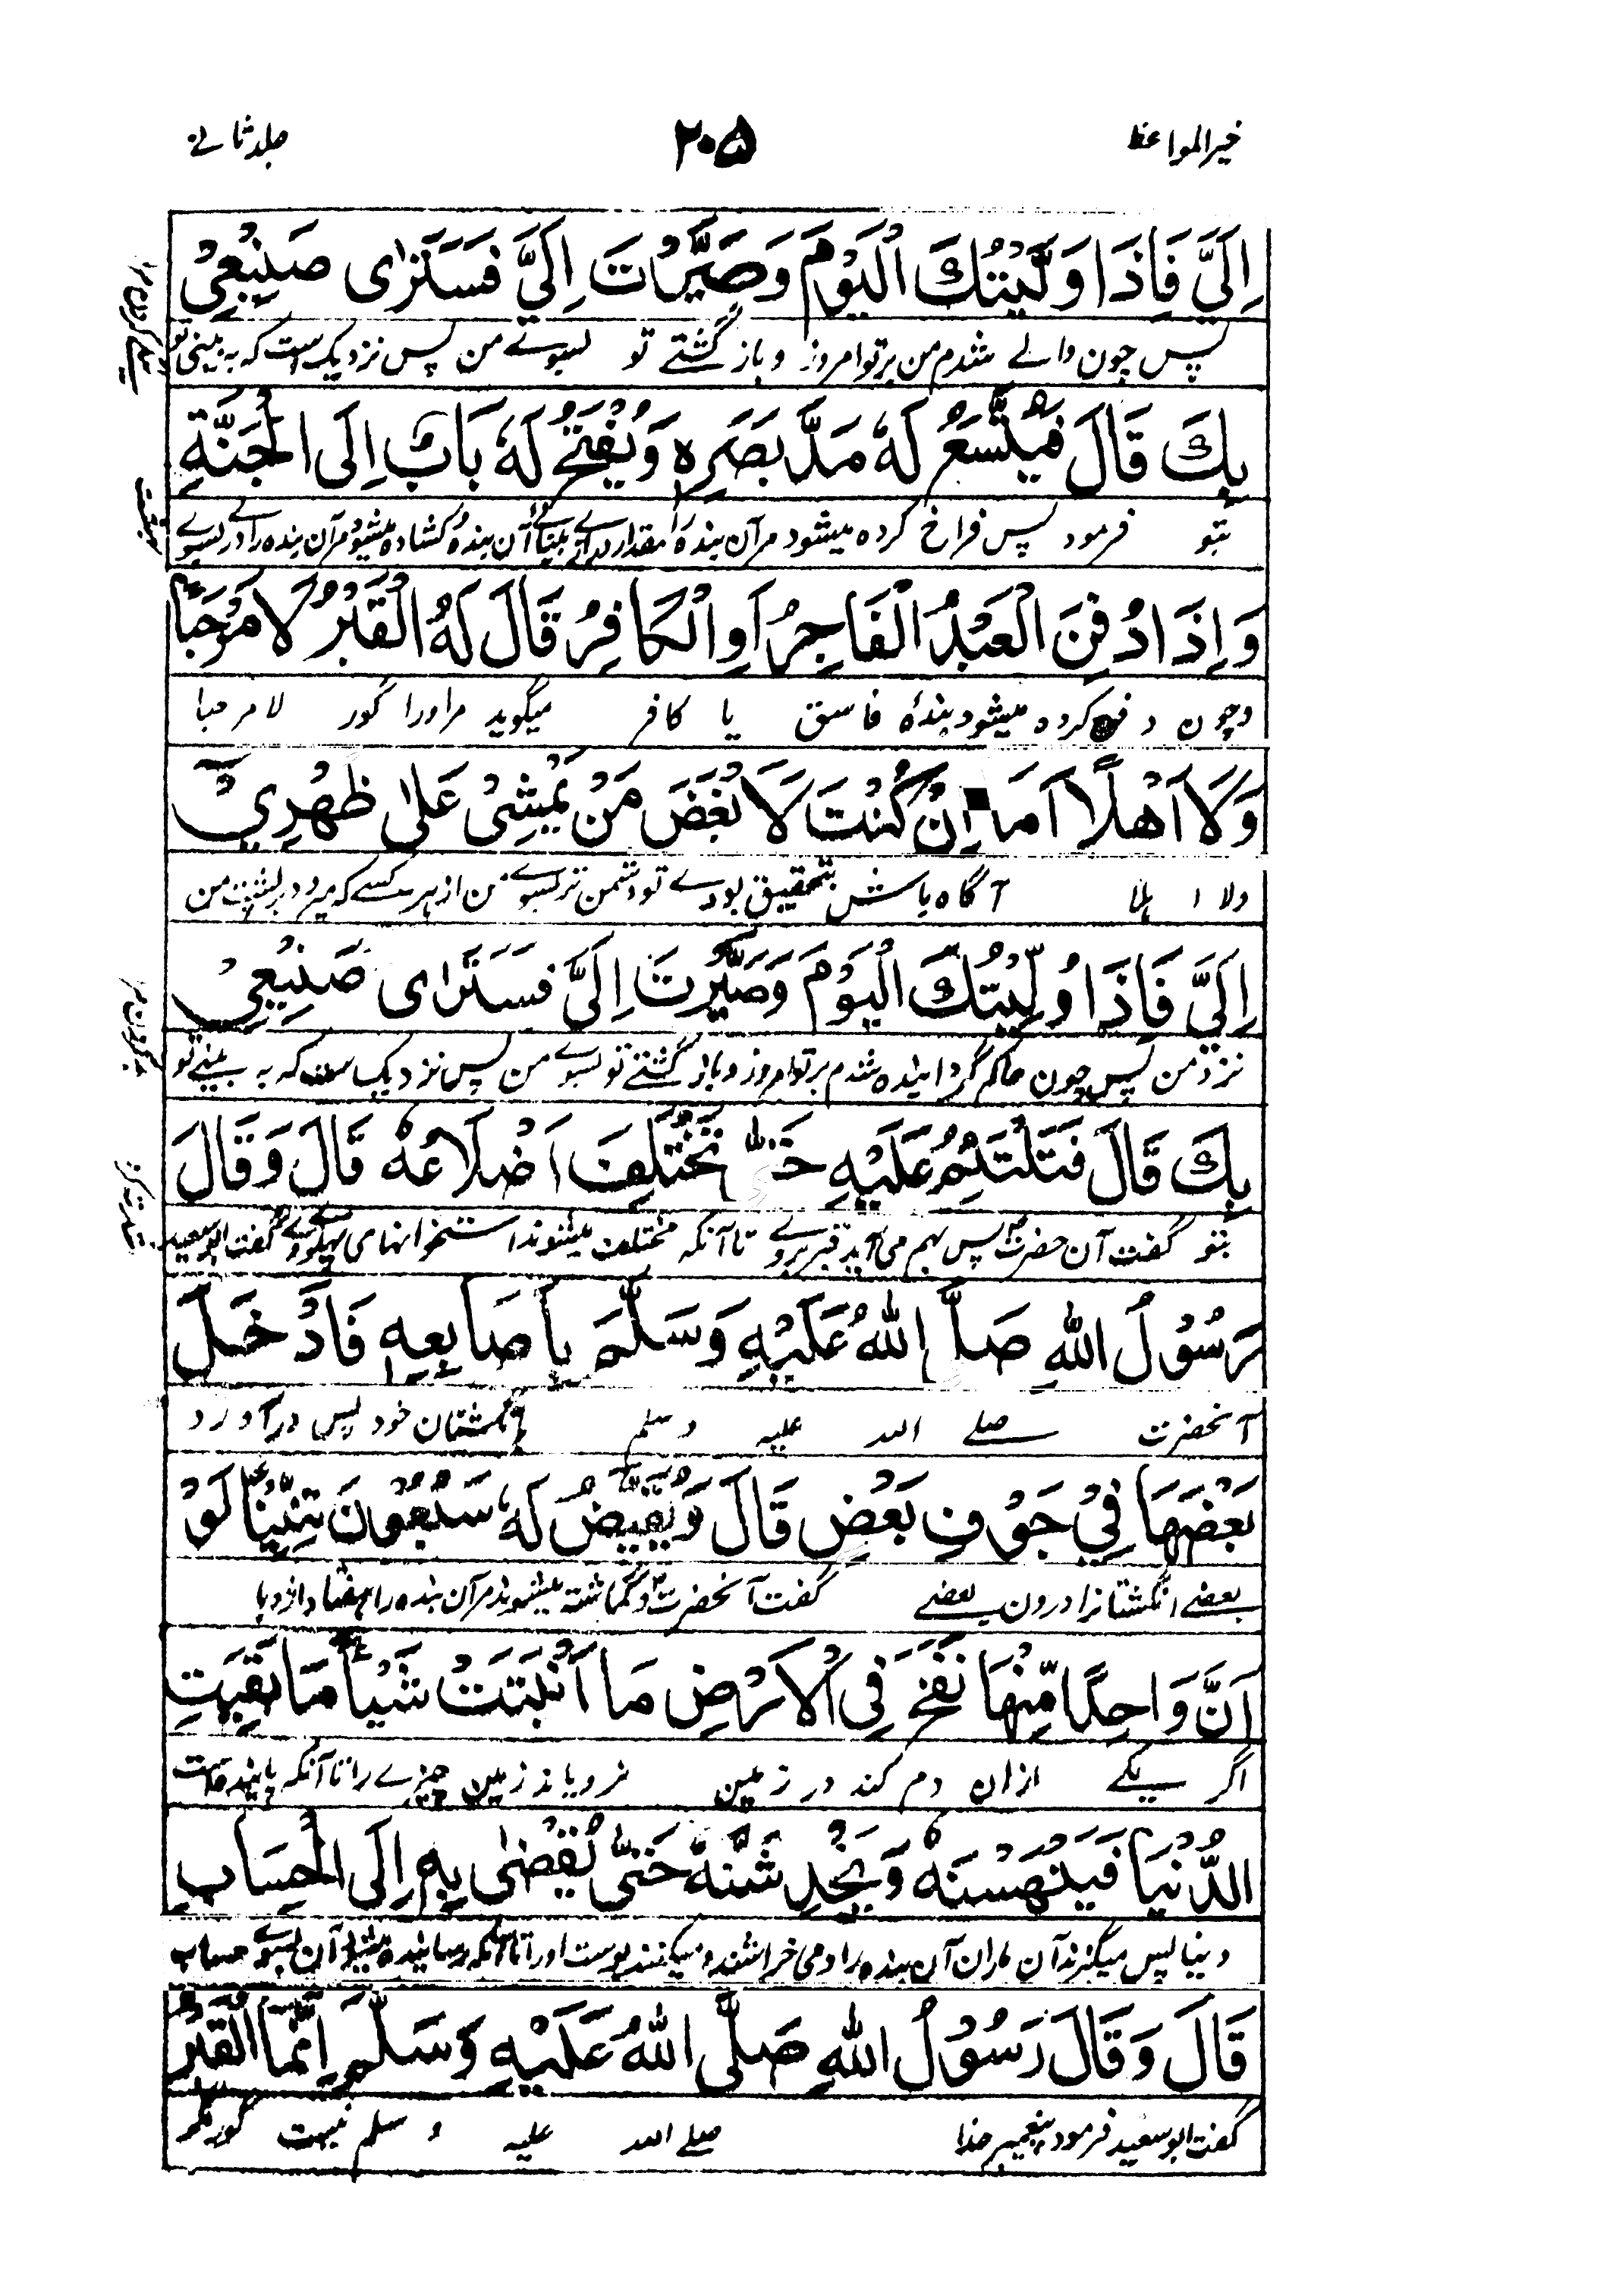 خیرالمواعظ
۲۰۵
جلد ثانے
اِلَيَّ فَاِذَا وَلِّيْتُكَ الْيَوْمَ وَصِيَّرْتَ اِلَيَّ فَسَتَرٰى صَنِيْعِيْ
پس چون والے شدم من بر تو امروز و باز گشتے تو بسوے من پس نزدیک است که به بینی تو
بِكَ قَالَ فَيَتَّسَعُ لَهٗ مَدَّ بَصَرِهٖ وَيُفْتَحُ لَهٗ بَابٌ اِلَى الْجَنَّةِ
بتو فرمود پس فراخ کرده میشود مر آن بنده را مقدار درازے بینائے آن بنده و کشاده میشود مر آن بنده را درے بسوے
بهشت
وَاِذَا دُفِنَ الْعَبْدُ الْفَاجِرُ اَوِ الْكَافِرُ قَالَ لَهُ الْقَبْرُ لَا مَرْحَبًا
و چون دفن کرده میشود بندۀ فاسق یا کافر میگوید مر او را گور لا مرحبا
وَلَا اَهْلًا اَمَا اِنْ كُنْتَ لَاَبْغَضَ مَنْ يَّمْشِيْ عَلٰى ظَهْرِيْ
ولا اہلا آگاه باش بتحقیق بودے تو دشمن تر بسوے من از ہر کسے که میرود بر پشت من
اِلَيَّ فَاِذَا وُلِّيْتُكَ الْيَوْمَ وَصِيَّرْتَ اِلَيَّ فَسَتَرٰى صَنِيْعِيْ
نزد من پس چون حاکم گردانیده شدم بر تو امروز و باز گشتے تو بسوے من پس نزدیک ست که به بینے تو
بِكَ قَالَ فَتَلْتَئِمُ عَلَيْهِ حَتّٰى تَخْتَلِفَ اَضْلَاعُهٗ قَالَ وَقَالَ
بتو گفت آن حضرت پس بہم می آید قبر بروے تا آنکه مختلف میشوند استخوانہای پہلوے وے گفت ابو سعید
رَسُوْلُ اللّٰهِ صَلَّى اللّٰهُ عَلَيْهِ وَسَلَّمَ بِاَصَابِعِهٖ فَاَدْخَلَ
آنحضرت صلے الله علیه وسلم بانگشتان خود پس درآورد
بَعْضَهَا فِيْ جَوْفِ بَعْضٍ قَالَ وَيُقَيَّضُ لَهٗ سَبْعُوْنَ تِنِّيْنًا لَوْ
بعضے انگشتانرا درون بعضے گفت آنحضرت و گماشته میشوند مر آن بنده را ہفتاد اژدہا
اَنَّ وَاحِدًا مِّنْهَا نَفَخَ فِى الْاَرْضِ مَا اَنْبَتَتْ شَيْئًا مَّا بَقِيَتِ
اگر یکے ازان دم کند در زمین نرویاند زمین چیزے را تا آنکه پاینده است
الدُّنْيَا فَيَنْهَسْنَهٗ وَيَخْدِشْنَهٗ حَتّٰى يُفْضٰى بِهٖ اِلَى الْحِسَابِ
دنیا پس میگزند آن ماران آن بنده را و می خراشند و میکنند پوست او را تا آنکه رسانیده میشود آن بسوے حساب
قَالَ وَقَالَ رَسُوْلُ اللّٰهِ صَلَّى اللّٰهُ عَلَيْهِ وَسَلَّمَ اِنَّمَا الْقَبْرُ
گفت ابو سعید فرمود پیغمبر خدا صلے الله علیه و سلم نیست گور مگر